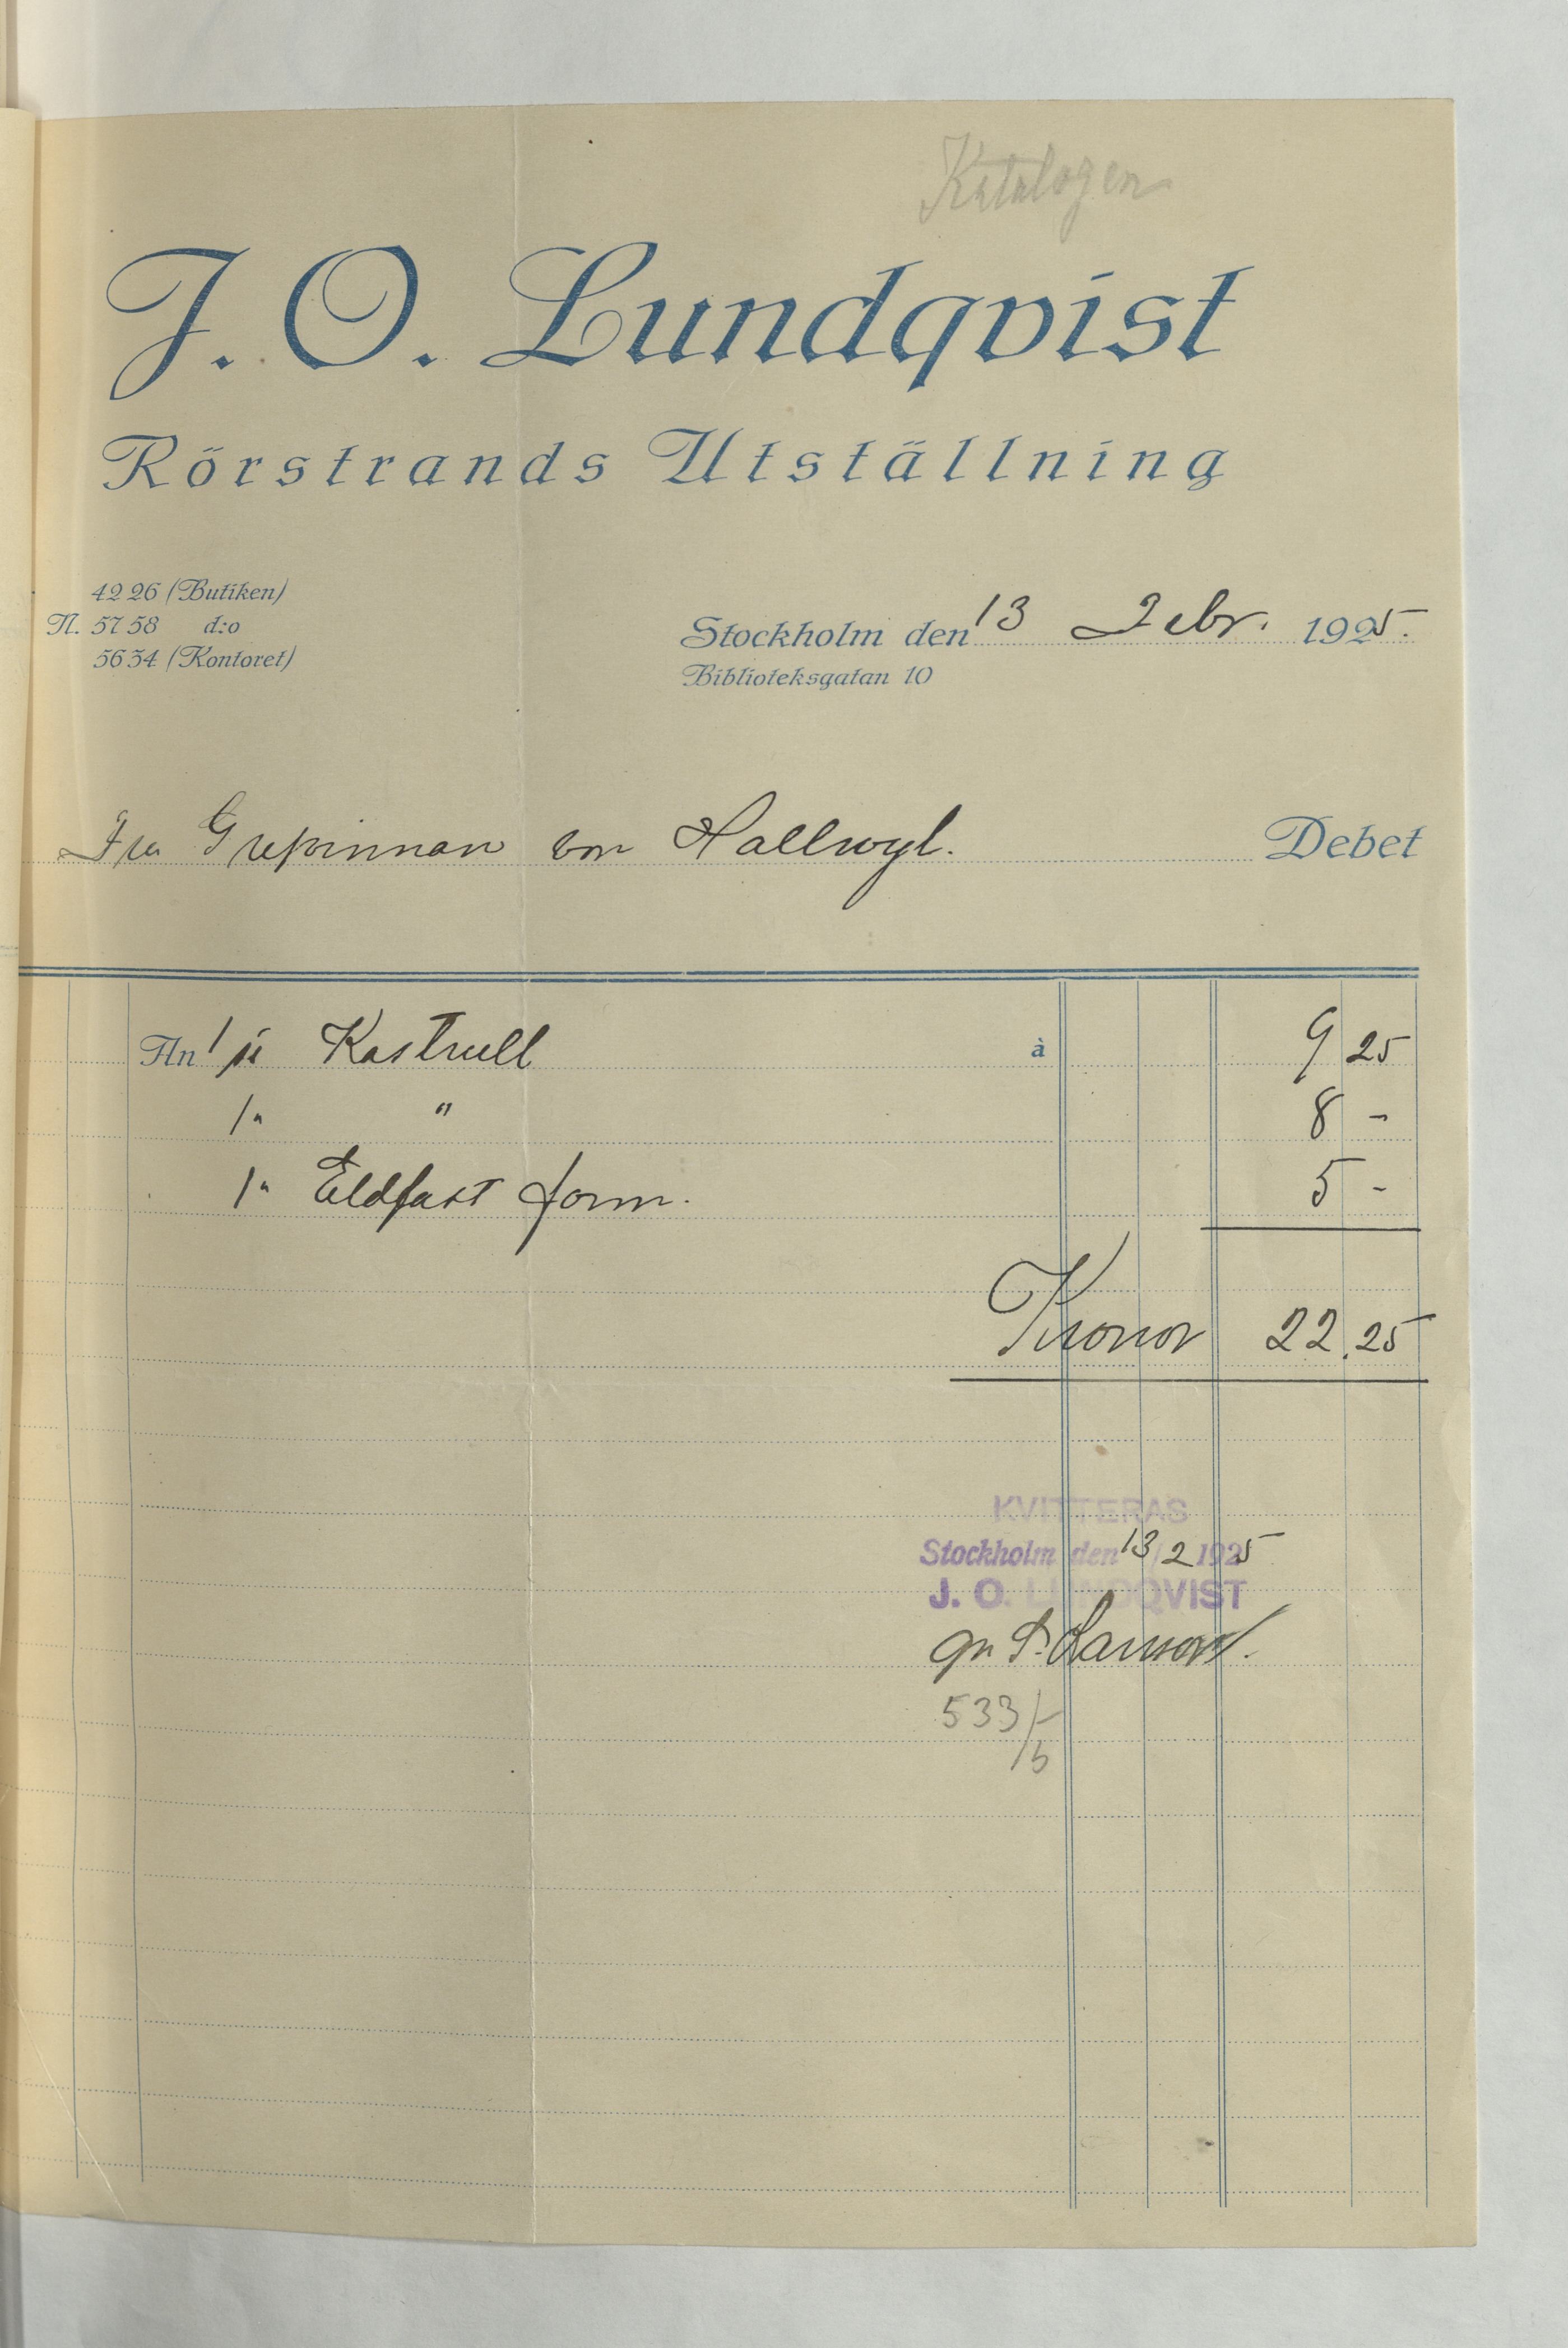 Katalogen
J. O. Lundqvist
Rörstrands Utställning
4226 (Butiken)
N. 5758 d:o
5654 (Kontoret)
Stockholm den 13 Febr. 1925.
Biblioteksgatan 10
Fru Grefvinnan von Hallwyl. Debet
An 1 st Kastrull à 9 25
1 " " 8 -
1 " Eldfast form. 5 -
Kronor 22.25
KVITTERAS
Stockholm den 13/2 1925
J. O. LUNDQVIST
533/-
/b